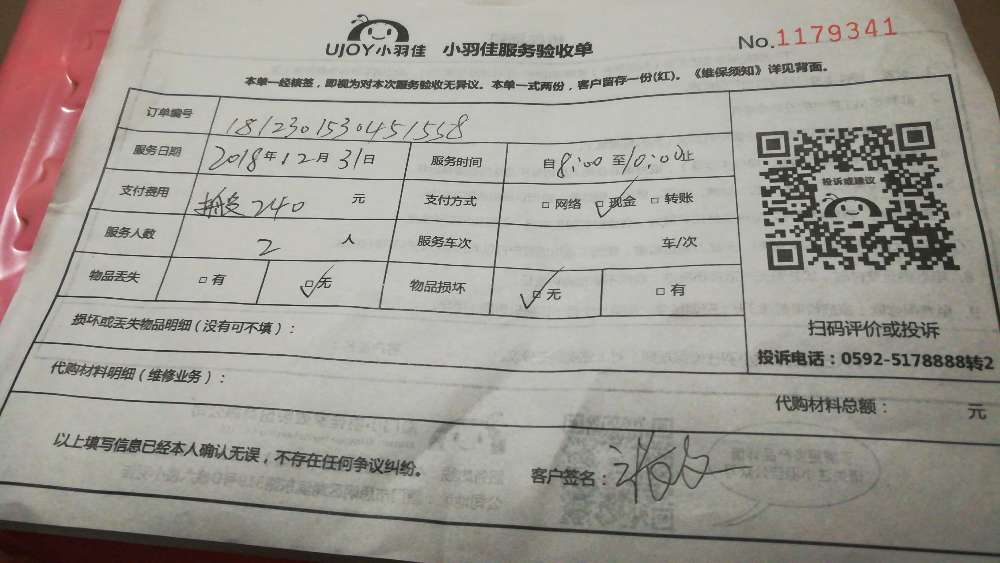 UJOY小羽佳 小羽佳服务验收单 No.1179341
本单一经核签，即视为对本次服务验收无异议。本单一式两份，客户留存一份(红)。《维保须知》详见背面。
订单编号 1812301530451558
服务日期 2018年12月31日 服务时间 自8:00至10:00止
支付费用 240 元 支付方式 □网络 □现金 □转账
服务人数 2 人 服务车次 车/次
物品丢失 □有 □无 物品损坏 □无 □有
损坏或丢失物品明细（没有可不填）：
投诉或建议
扫码评价或投诉
投诉电话：0592-5178888转2
代购材料明细（维修业务）：
代购材料总额： 元
以上填写信息已经本人确认无误，不存在任何争议纠纷。
客户签名：